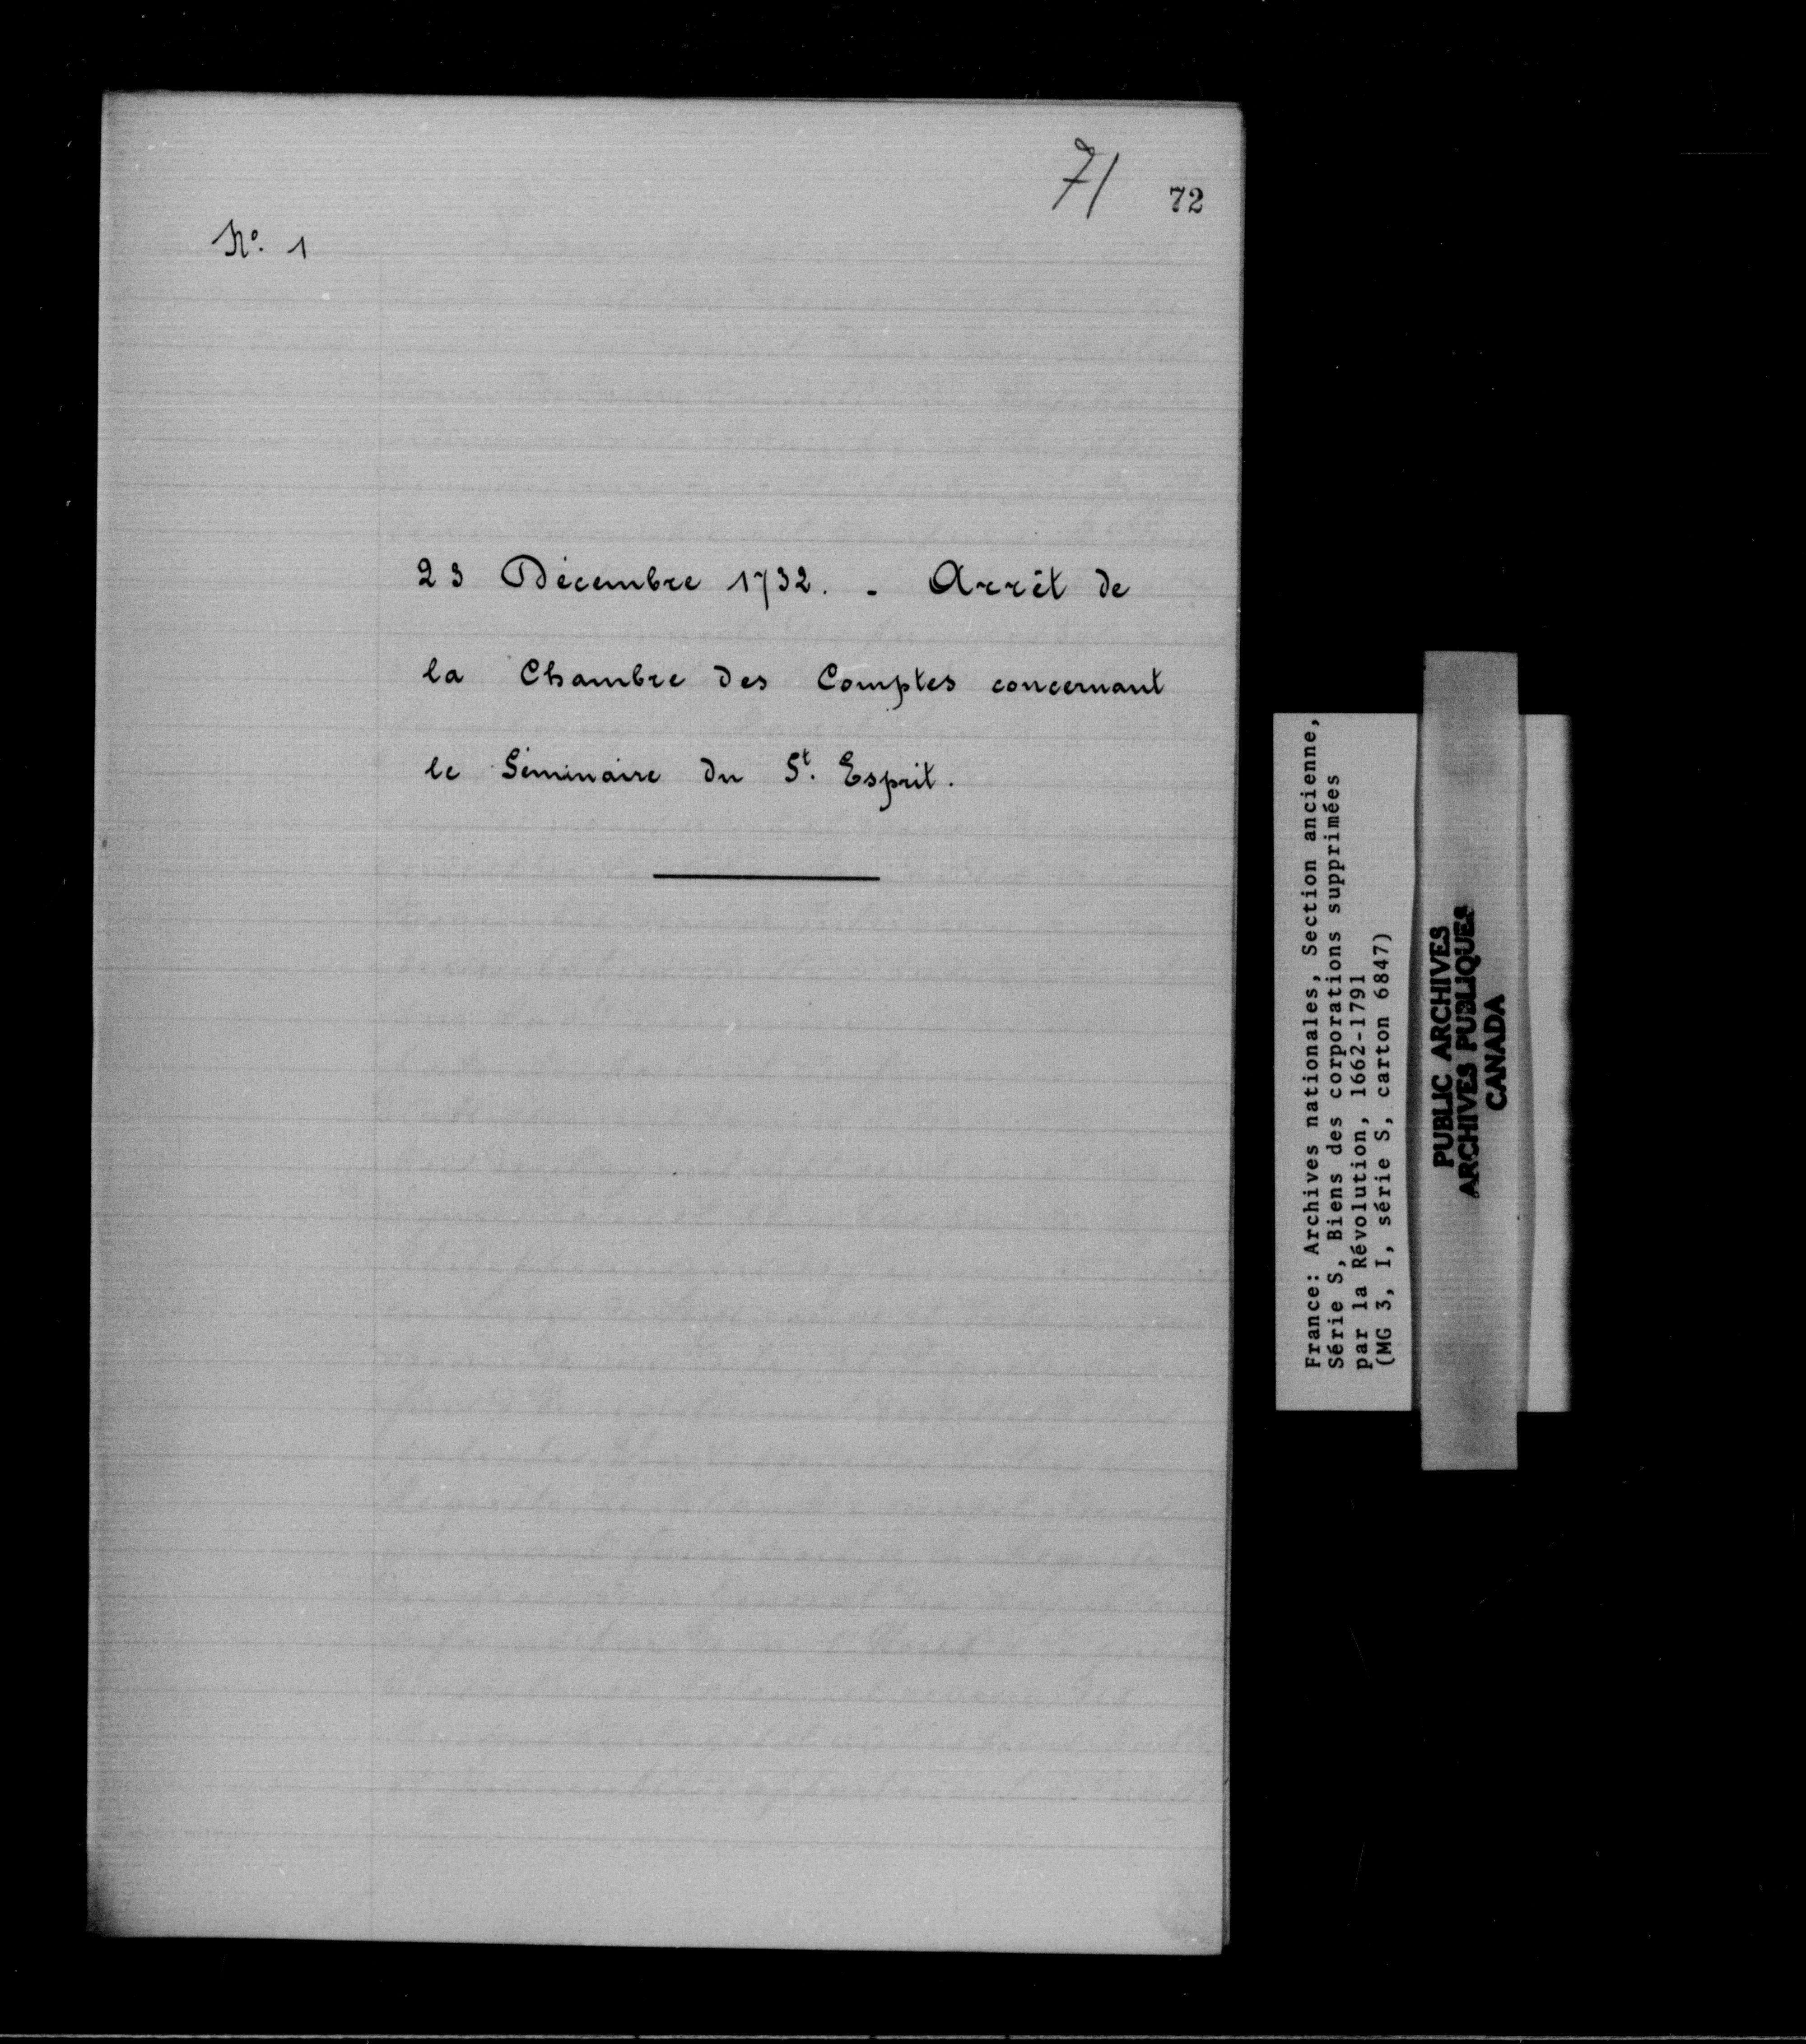 71 72
No. 1
23 Décembre 1732. - Arrêt de
la Chambre des Comptes concernant
le Séminaire du St. Esprit.
France: Archives nationales, Section ancienne,
Série S, Biens des corporations supprimées
par la Révolution, 1662-1791
(MG 3, I, série S, carton 6847)
PUBLIC ARCHIVES
ARCHIVES PUBLIQUES
CANADA